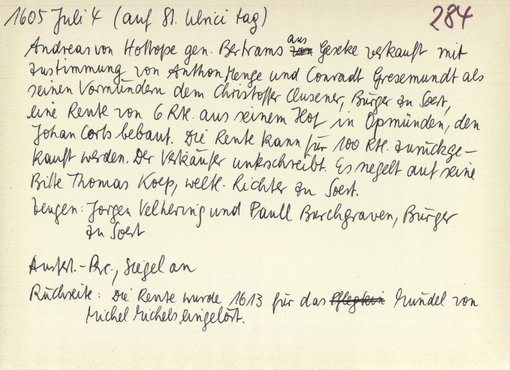 1605 Juli 4 (auf St. Ulrici tag)
284
Andreas von Hottope gen. Bertrams aus Geseke verkauft mit
Zustimmung von Anthon Menge und Conradt Gresemundt als
seinen Vormündern dem Christoffer Clusener, Bürger zu Soest,
eine Rente von 6 Rtl. aus seinem Hof in Opmünden, den
Johan Cords bebaut. Die Rente kann für 100 Rtl. zurückge-
kauft werden. Der Verkäufer unterschreibt. Es siegelt auf seine
Bitte Thomas Koep, weltl. Richter zu Soest.
Zeugen: Jorgen Velthering und Paull Burchgraven, Bürger
zu Soest
Ausf.-Perg., Siegel an
Rückseite: Die Rente wurde 1613 für das Mündel von
Michel Michels eingelöst.